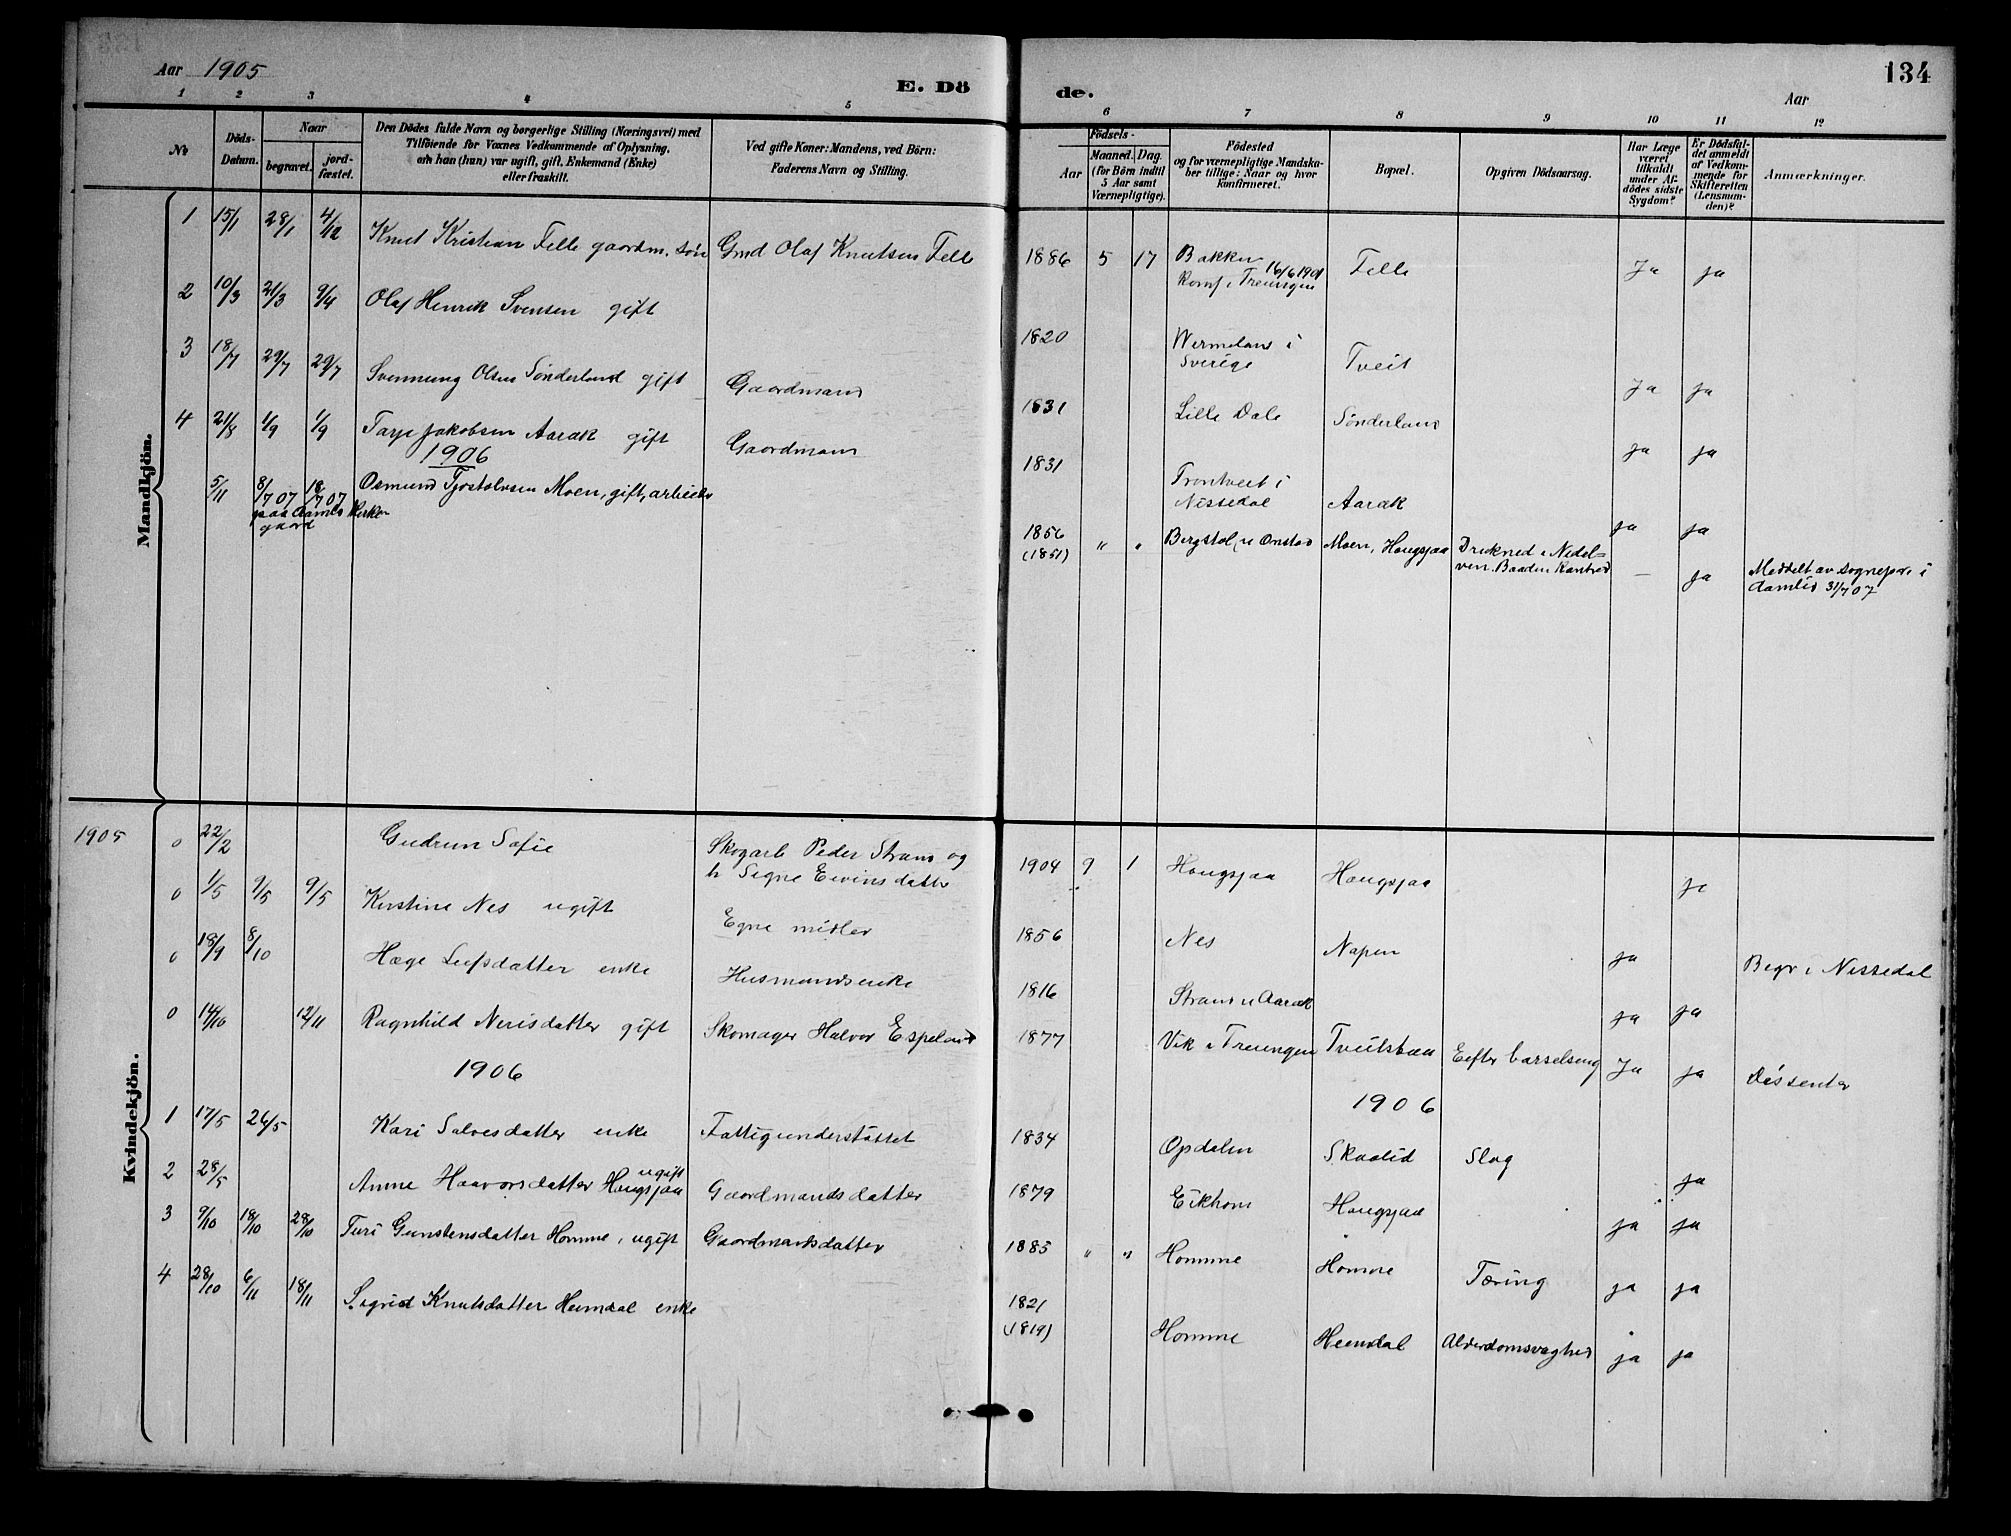 Aar 1905
E. Dö
1 2 3 4 5
№
Döds-
Datum.
Naar
begravet.
jord-
fæstet.
Den Dödes fulde Navn og borgerlige Stilling (Næringsvei) med
Tilföiende for Voxnes Vedkommende af Oplysning,
om han (hun) var ugift, gift, Enkemand (Enke)
eller fraskilt.
Ved gifte Koner: Mandens, ved Börn:
Faderens Navn og Stilling.
Mandkjön.
1 15/1 28/1 4/12 Knut Kristian Felle gaardm. søn Gmd Olaf Knutsen Felle
2 10/3 21/3 9/4 Olaf Henrik Svensen gift
3 18/7 29/7 29/7 Svennung Olsen Sønderland gift Gaardmand
4 21/8 1/9 1/9 Tarje Jakobsen Aarak gift Gaardmann
1906
5/11 8/7 07 18/7 07 Osmund Tjostolvsen Moen, gift, arbeider
paa Aamli Kirke
gaard
1905
Kvindekjön.
0 22/2 Gudrun Sofie Skogarb Peder Strand og
h Signe Eivinsdatter
0 1/5 9/5 9/5 Kirstine Nes ugift Egne midler
0 18/9 8/10 Hæge Leifsdatter enke Husmandsenke
0 14/10 12/11 Ragnhild Nerisdatter gift Skomager Halvor Espeland
1906
1 17/5 26/5 Kari Salvesdatter enke Fattigunderstøttet
2 28/5 Anne Haavorsdatter Haugsjaa ugift Gaardmandsdatter
3 9/10 18/10 28/10 Turi Gunstensdatter Homme, ugift Gaardmansdatter
4 28/10 6/11 18/11 Sigrid Knutsdatter Heimdal enke
de.
Aar
134
6 7 8 9 10 11 12
Födsels-
Aar
Maaned. Dag.
(for Börn indtil
5 Aar samt
Værnepligtige).
Födested
og for værnepligtige Mandska-
ber tillige: Naar og hvor
konfirmeret.
Bopæl.
Opgiven Dödsaarsag.
Har Læge
været
tilkaldt
under Af-
dödes sidste
Sygdom?
Er Dödsfal-
det anmeldt
af Vedkom-
mende for
Skifteretten
(Lensman-
den)?
Anmærkninger.
1886 5 17 Bakken Felle Ja ja
Konf i Treungen 16/6 1901
1820 Wermeland i
Sverige Tveit Ja ja
1831 Lille Dale Sønderland ja ja
1831 Trontveit i
Nissedal Aarak ja ja
1856
(1851) " " Bergstøl, u Onstad Moen, Haugsjaa Drukned i Nidel-
ven. Baaden kantred — ja Meddelt av sognepr. i
Aamlid 31/7 07
1904 9 1 Haugsjaa Haugsjaa ja
1856 Nes Napen ja Begr i Nissedal
1816 Strand u Aarak ja ja
1877 Vik i Treungen Tveitsbaa Eefter barselseng Ja ja Dissenter
1906
1834 Opdalen Skaalid Slag ja
1879 Eikhom Haugsjaa ja ja
1885 " " Homme Homme Tæring ja ja
1821
(1819) Homme Heimdal Alderdomsvaghed ja ja